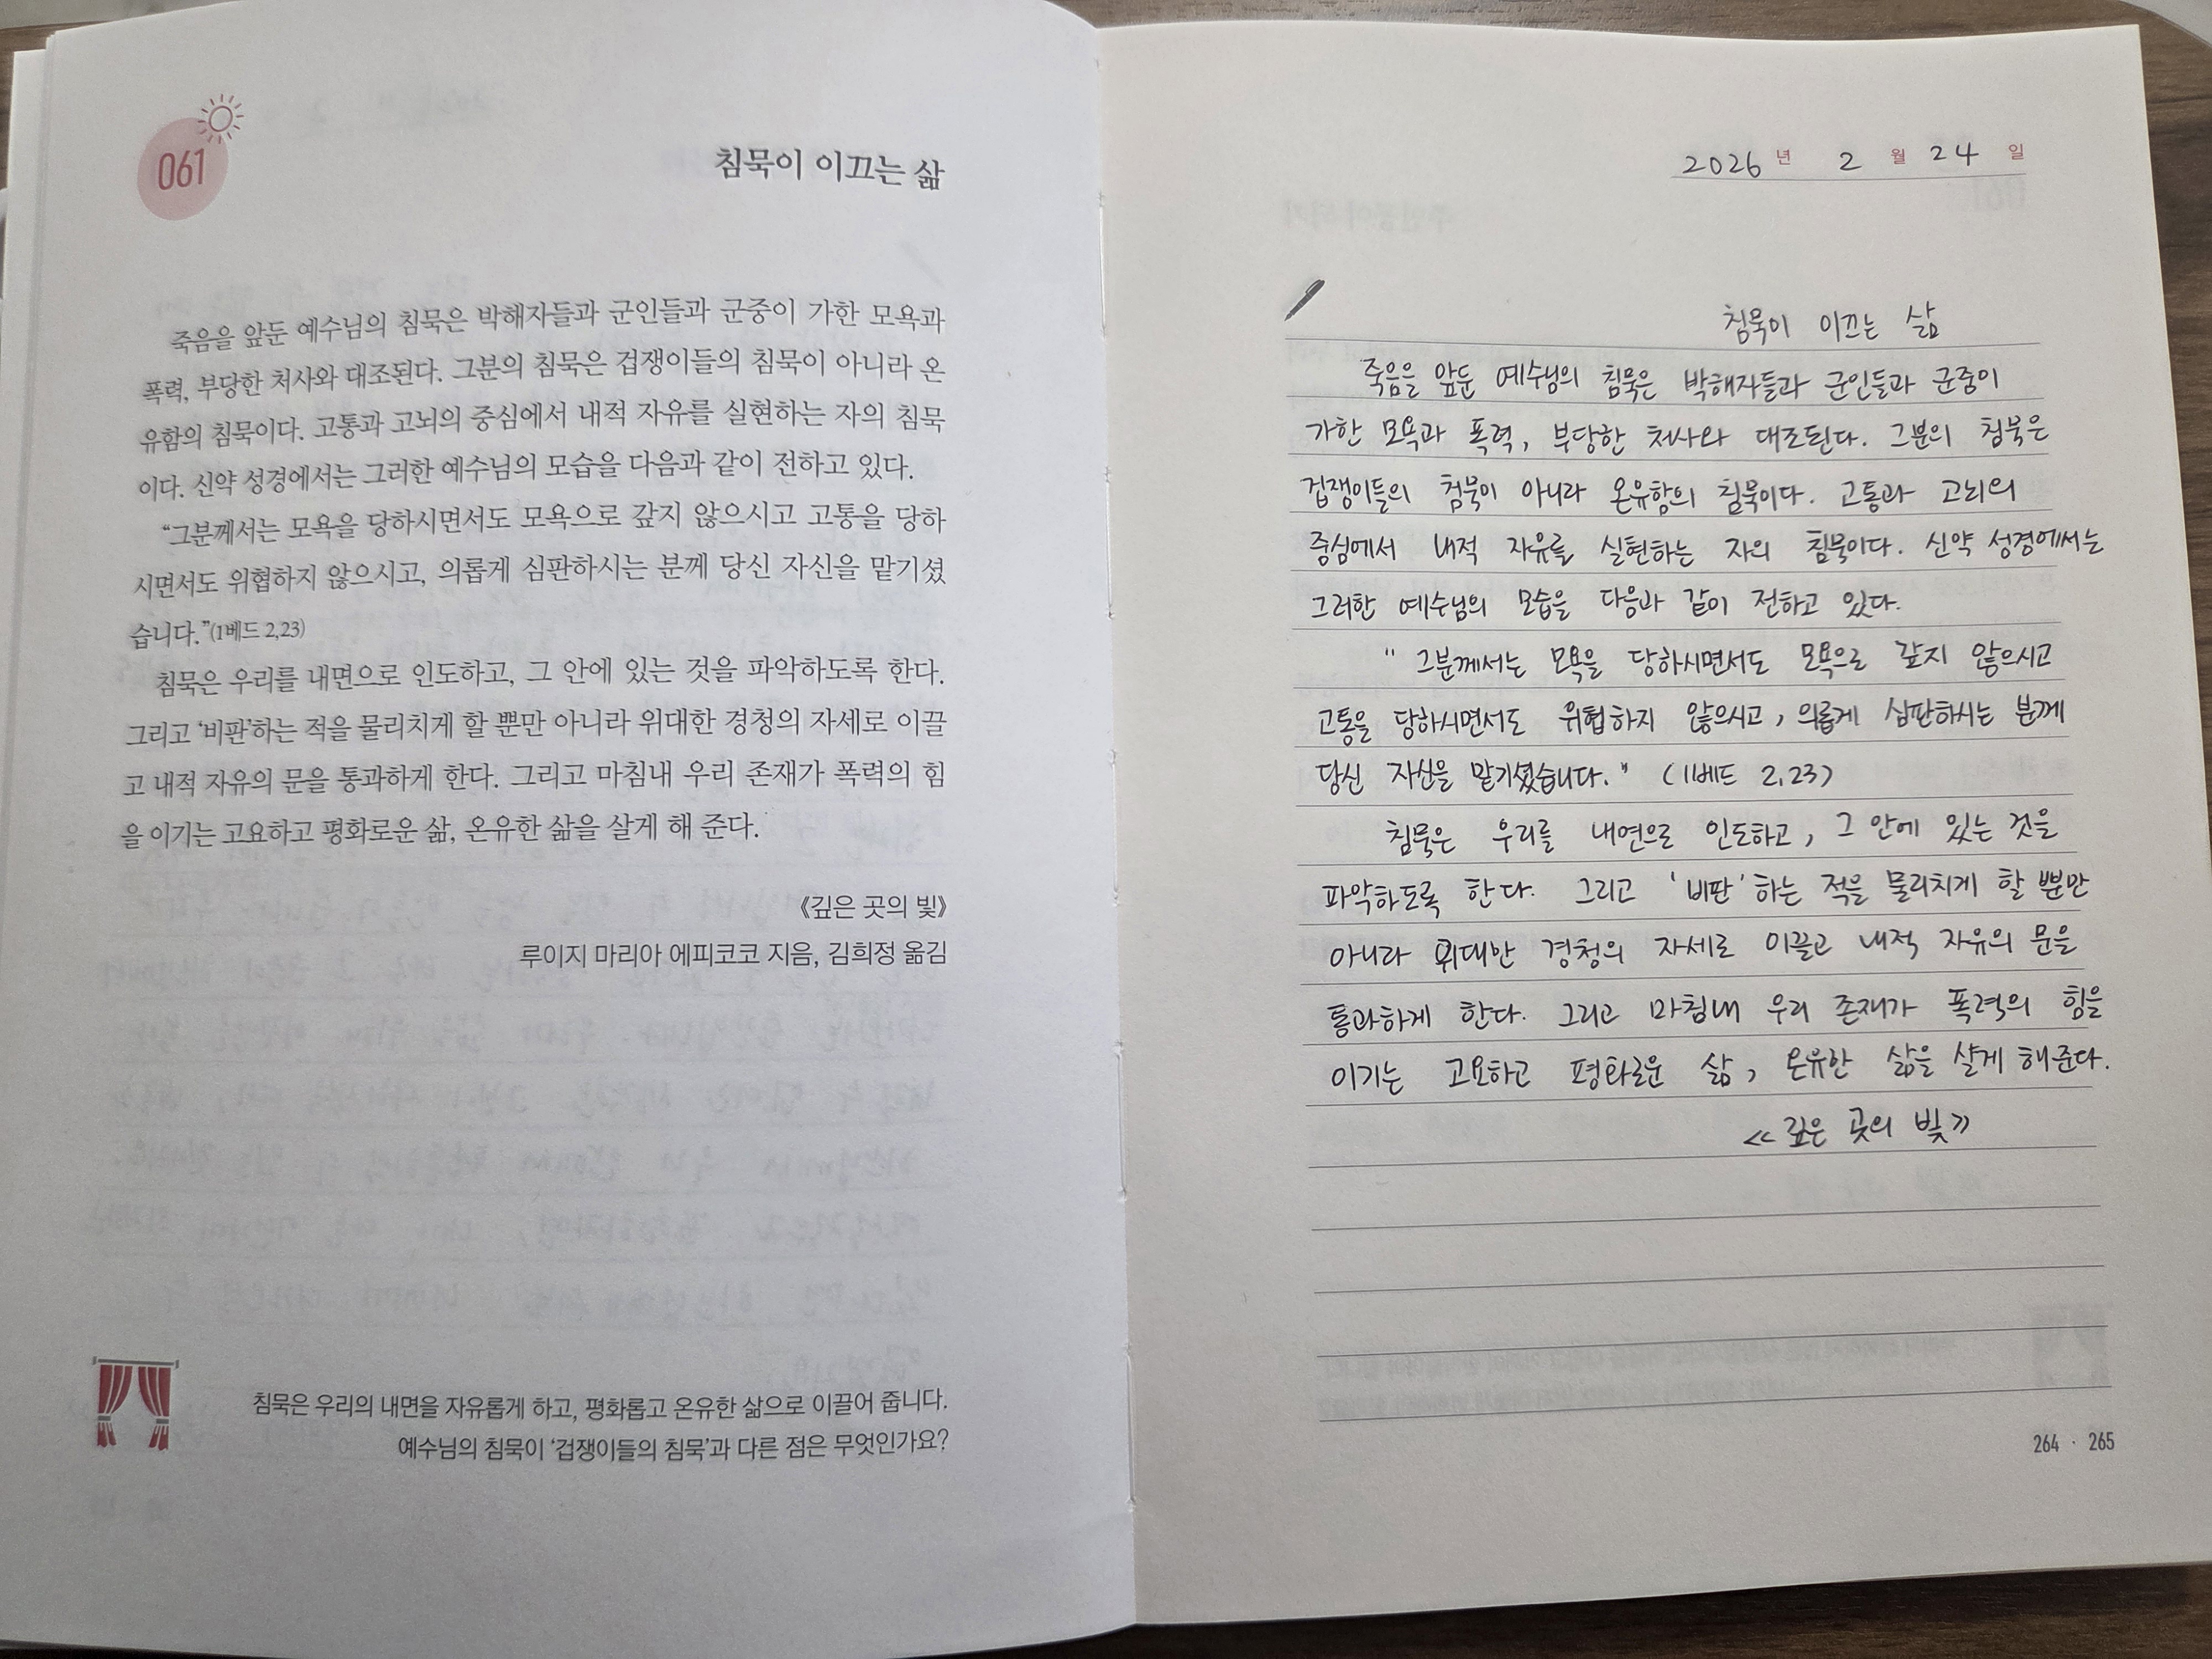 061
침묵이 이끄는 삶
죽음을 앞둔 예수님의 침묵은 박해자들과 군인들과 군중이 가한 모욕과
폭력, 부당한 처사와 대조된다. 그분의 침묵은 겁쟁이들의 침묵이 아니라 온
유함의 침묵이다. 고통과 고뇌의 중심에서 내적 자유를 실현하는 자의 침묵
이다. 신약 성경에서는 그러한 예수님의 모습을 다음과 같이 전하고 있다.
“그분께서는 모욕을 당하시면서도 모욕으로 갚지 않으시고 고통을 당하
시면서도 위협하지 않으시고, 의롭게 심판하시는 분께 당신 자신을 맡기셨
습니다.”(1베드 2,23)
침묵은 우리를 내면으로 인도하고, 그 안에 있는 것을 파악하도록 한다.
그리고 ‘비판’하는 적을 물리치게 할 뿐만 아니라 위대한 경청의 자세로 이끌
고 내적 자유의 문을 통과하게 한다. 그리고 마침내 우리 존재가 폭력의 힘
을 이기는 고요하고 평화로운 삶, 온유한 삶을 살게 해 준다.
《깊은 곳의 빛》
루이지 마리아 에피코코 지음, 김희정 옮김
침묵은 우리의 내면을 자유롭게 하고, 평화롭고 온유한 삶으로 이끌어 줍니다.
예수님의 침묵이 ‘겁쟁이들의 침묵’과 다른 점은 무엇인가요?
2026 년 2 월 24 일
침묵이 이끄는 삶
죽음을 앞둔 예수님의 침묵은 박해자들과 군인들과 군중이
가한 모욕과 폭력, 부당한 처사와 대조된다. 그분의 침묵은
겁쟁이들의 침묵이 아니라 온유함의 침묵이다. 고통과 고뇌의
중심에서 내적 자유를 실현하는 자의 침묵이다. 신약 성경에서는
그러한 예수님의 모습을 다음과 같이 전하고 있다.
" 그분께서는 모욕을 당하시면서도 모욕으로 갚지 않으시고
고통을 당하시면서도 위협하지 않으시고, 의롭게 심판하시는 분께
당신 자신을 맡기셨습니다." (1베드 2,23)
침묵은 우리를 내면으로 인도하고, 그 안에 있는 것을
파악하도록 한다. 그리고 '비판'하는 적을 물리치게 할 뿐만
아니라 위대한 경청의 자세로 이끌고 내적 자유의 문을
통과하게 한다. 그리고 마침내 우리 존재가 폭력의 힘을
이기는 고요하고 평화로운 삶, 온유한 삶을 살게 해준다.
《깊은 곳의 빛》
264 · 265